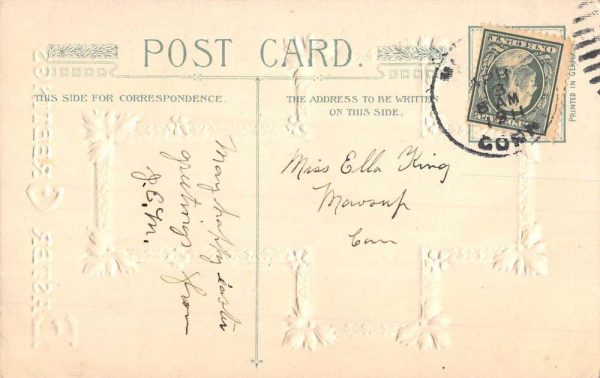 POST CARD.
THIS SIDE FOR CORRESPONDENCE.
THE ADDRESS TO BE WRITTEN
ON THIS SIDE.
PRINTED IN GERMANY
Many happy easter
greetings from
J.E.M.
Miss Ella King
Moosup
Conn
AM
CONN
EASTER GREETINGS